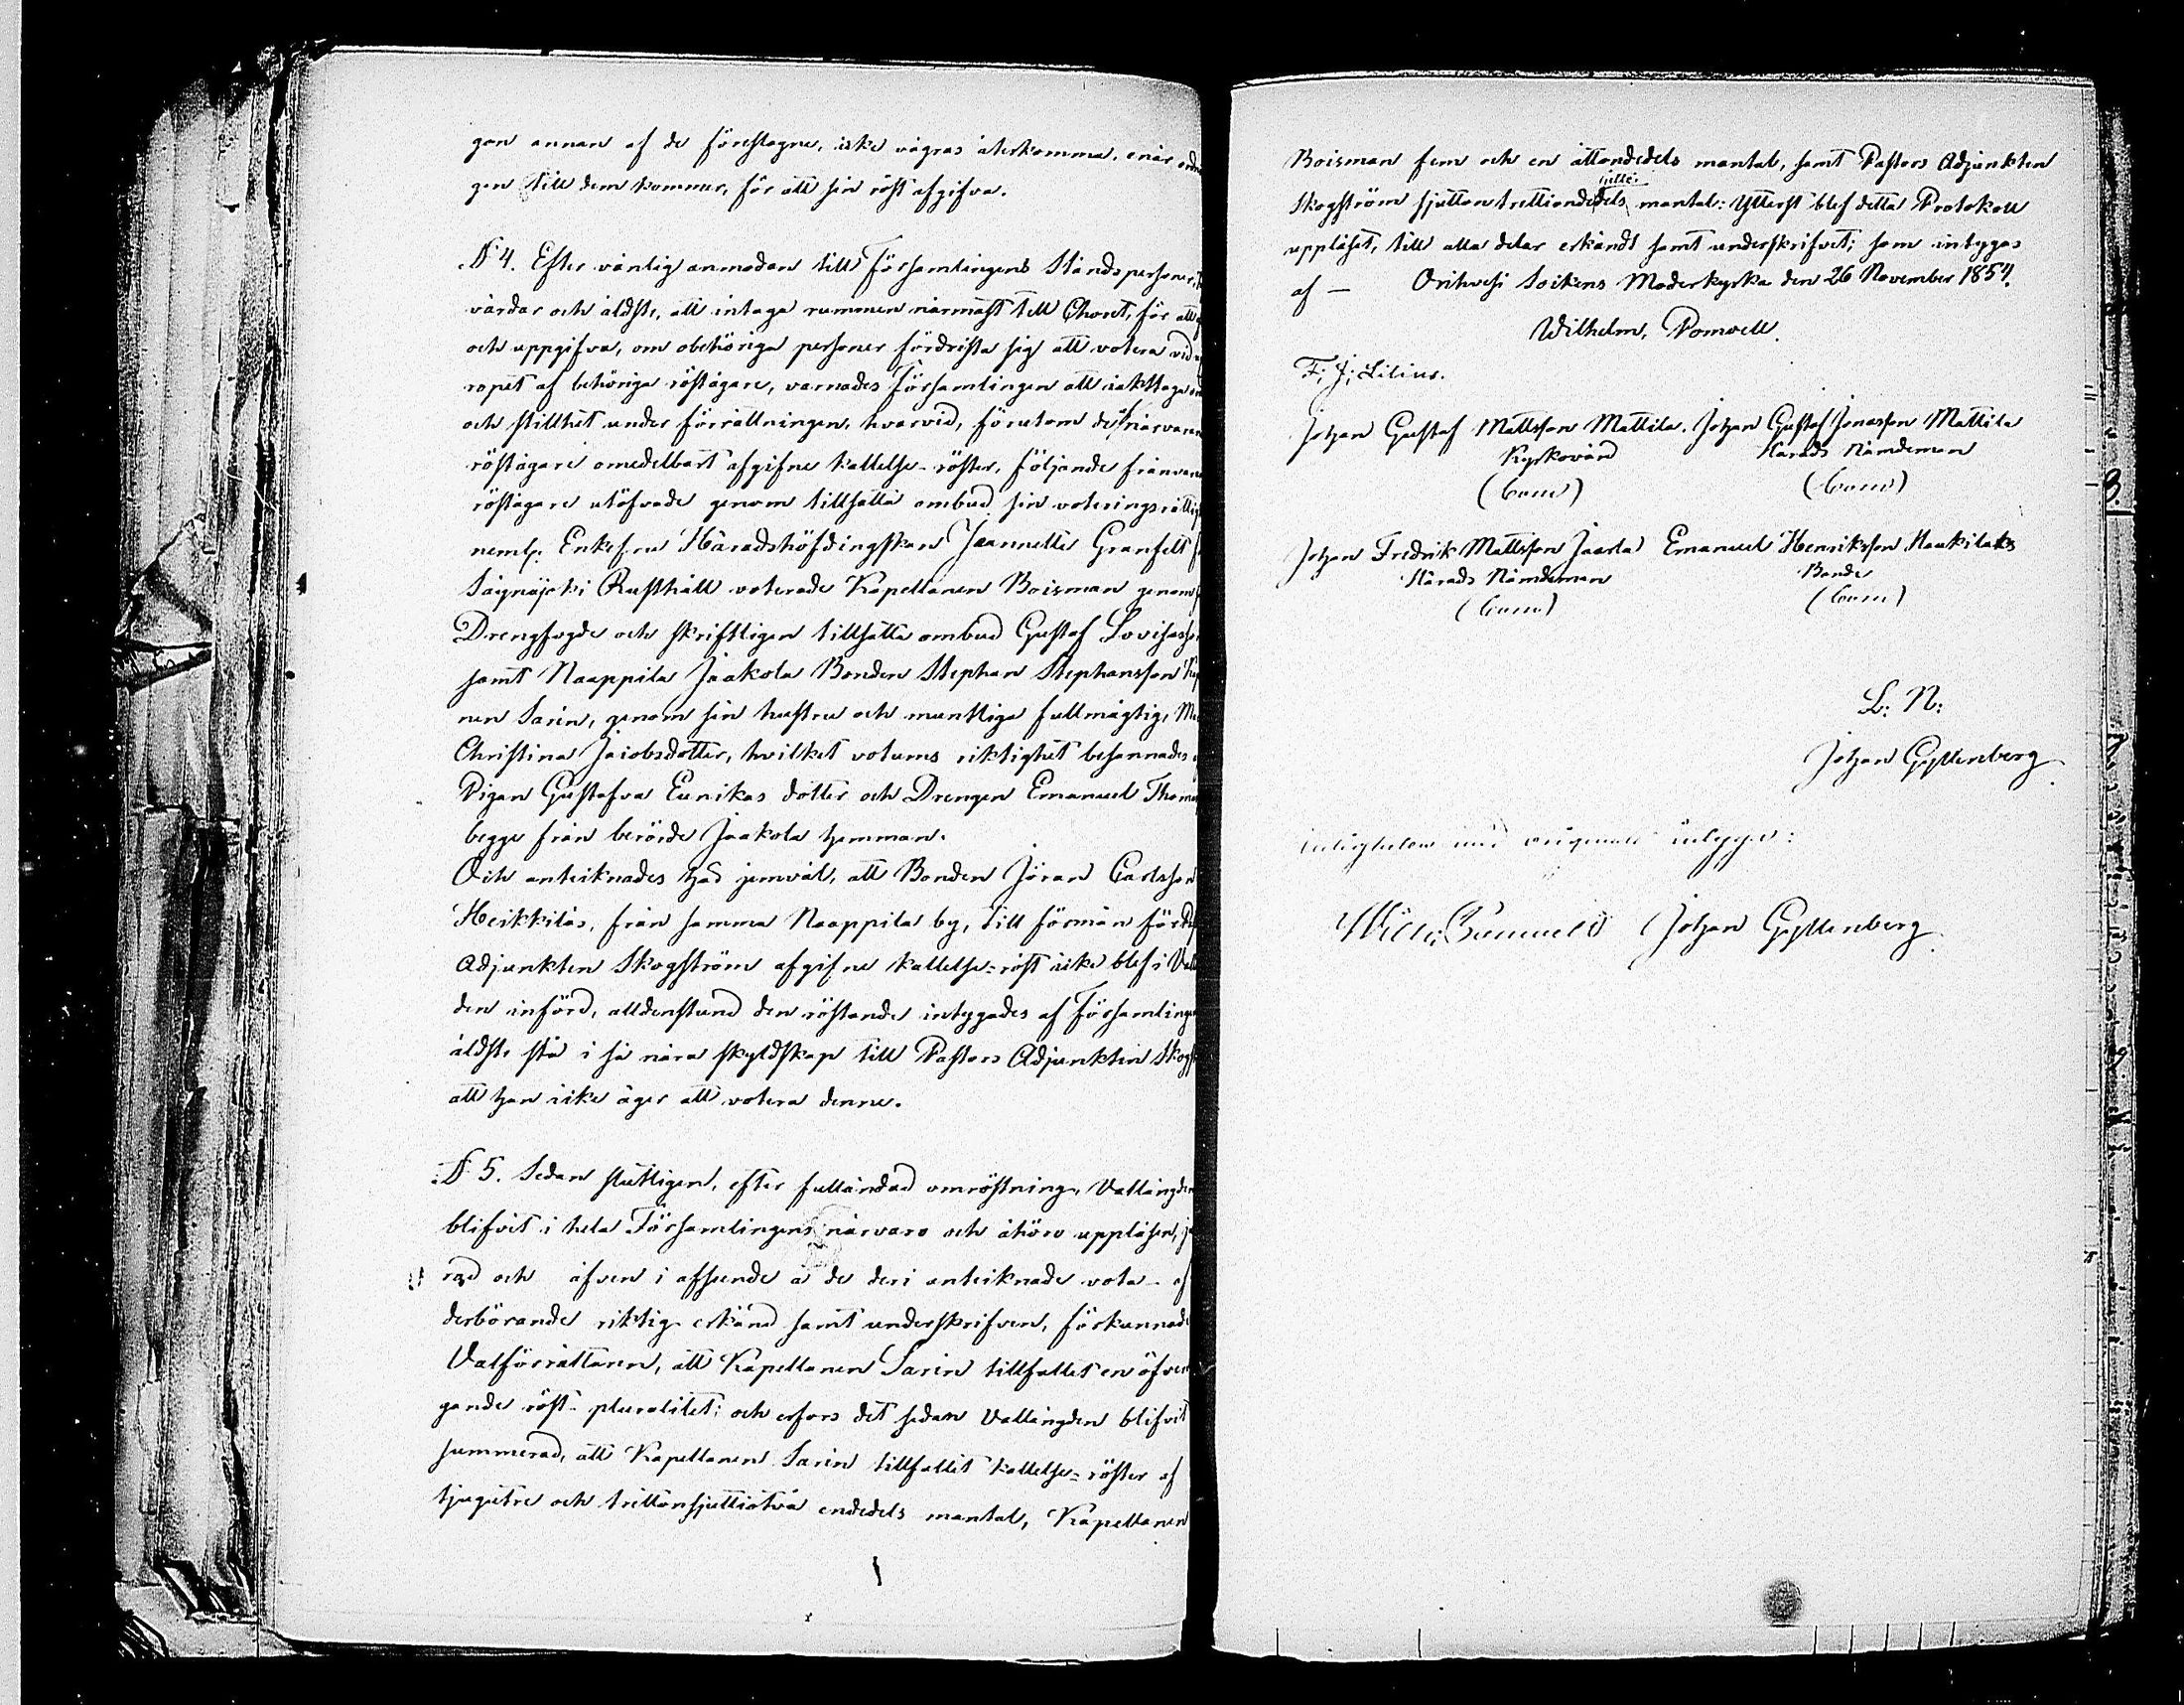 gon annan af de föreslagne, icke vägras återkomma, enär
gen till dem kommer, för att sin röst afgifva.
§ 4. Efter vänlig anmodan till Församlingens Ståndspersoner,
värdar och äldste, att intaga rummen närmast till Choret, för att
och uppgifva, om obehöriga personer fördrista sig att votera vid
ropet af behöriga röstägare, varnades Församlingen att iakttaga
och stillhet under förrättningen, hvarvid, förutom de närvaran
röstägare omedelbart afgifne kallelse-röster, följande frånvara
röstägare utöfvade genom tillsatta ombud sin voteringsrättig
neml. Enkefru Häradshöfdingskan Jeannette Granfelt
Säynäjoki Rusthåll voterade Kapellanen Boisman genom
Drengfogde och skriftligen tillsatte ombud Gustaf Lovisasson
samt Naappila Jaakola Bonden Stephan Stephansson
nen Sarin, genom sin hustru och muntliga fullmägtig,
Christina Jacobsdotter, hvilket votums riktighet besannades
Pigan Gustafva Eunikas dotter och Drengen Emanuel Thoma
begge från berörde Jaakola hemman.
Och antecknades här jemväl, att Bonden Jöran Carlsson
Heikkiläs, från samma Naappila by, till förmån för
Adjunkten Skogström afgifne kallelse-röst icke blef i
den införd, alldenstund den röstande intygades af Församlinge
äldste stå i så nära skyldskap till Pastors Adjunkten Skogs
att han icke äger att votera denne.
§ 5. Sedan slutligen, efter fulländad omröstning, Vallängden
blifvit i hela Församlingens närvaro och åhöro uppläsen,
rad och äfven i afseende å de deri antecknade vota af
derbörande riktig erkänd samt underskrifven, förkunnade
Valförrättaren, att Kapellanen Sarin tillfallit en öfver
gande röst-pluralitet; och erfors det sedan Vallängden blifvit
summerad, att Kapellanen Sarin tillfallit kallelse-röster af
tjugutre och trettonsjuttiotvå endedels mantal, Kapellanen
Boisman fem och en åttondedels mantal, samt Pastors Adjunkten
Skogström sjutton trettiondedels mantal: Ytterst blef detta Protokoll
uppläset, till alla delar erkändt samt underskrifvet; som intygas
af — Orihvesi Sockens Moderkyrka den 26 November 1854.
Wilhelm, Pomoell.
F; J; Lilius.
Johan Gustaf Mattsson Mattila. Johan Gustaf Jonasson Mattila
Kyrkovärd Härads Nämdeman
(bom) (bom)
Johan Fredrik Mattsson Jaarla Emanuel Henriksson Haukilaks
Härads Nämdeman Bonde
(bom) (bom)
L: N:
Johan Gyllenberg
intyga:
Wilh; Pomoell Johan Gyllenberg